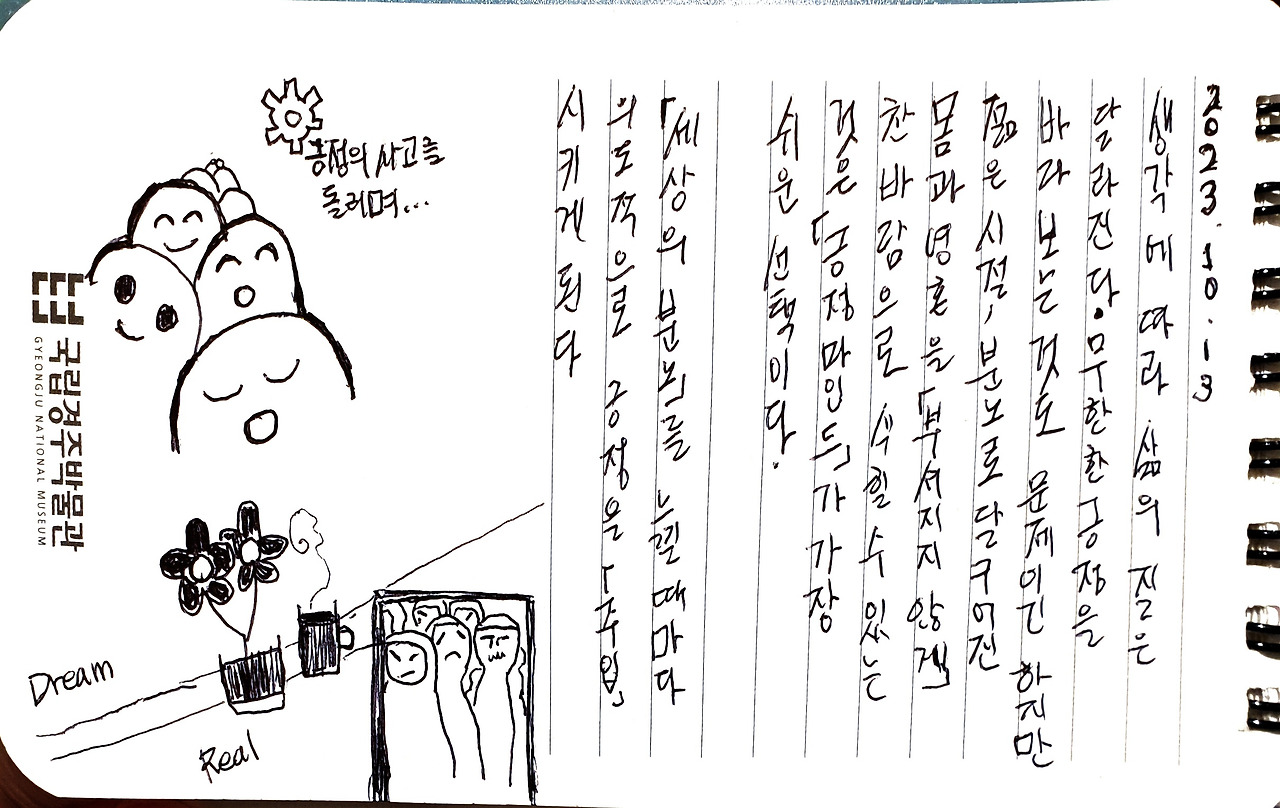 2023.10.13
생각에 따라 삶의 질은
달라진다. 무한한 긍정을
바라 보는 것도 문제이긴 하지만
젊은 시절, 분노로 달구어진
몸과 영혼을 「부서지지 않게」
찬 바람으로 식힐 수 있는
것은 「긍정마인드」가 가장
쉬운 선택이다.
「세상의 분노」를 느낄 때마다
의도적으로 긍정을 「주입」
시키게 된다
긍정의 사고를
돌리며...
국립경주박물관
GYEONGJU NATIONAL MUSEUM
Dream
Real